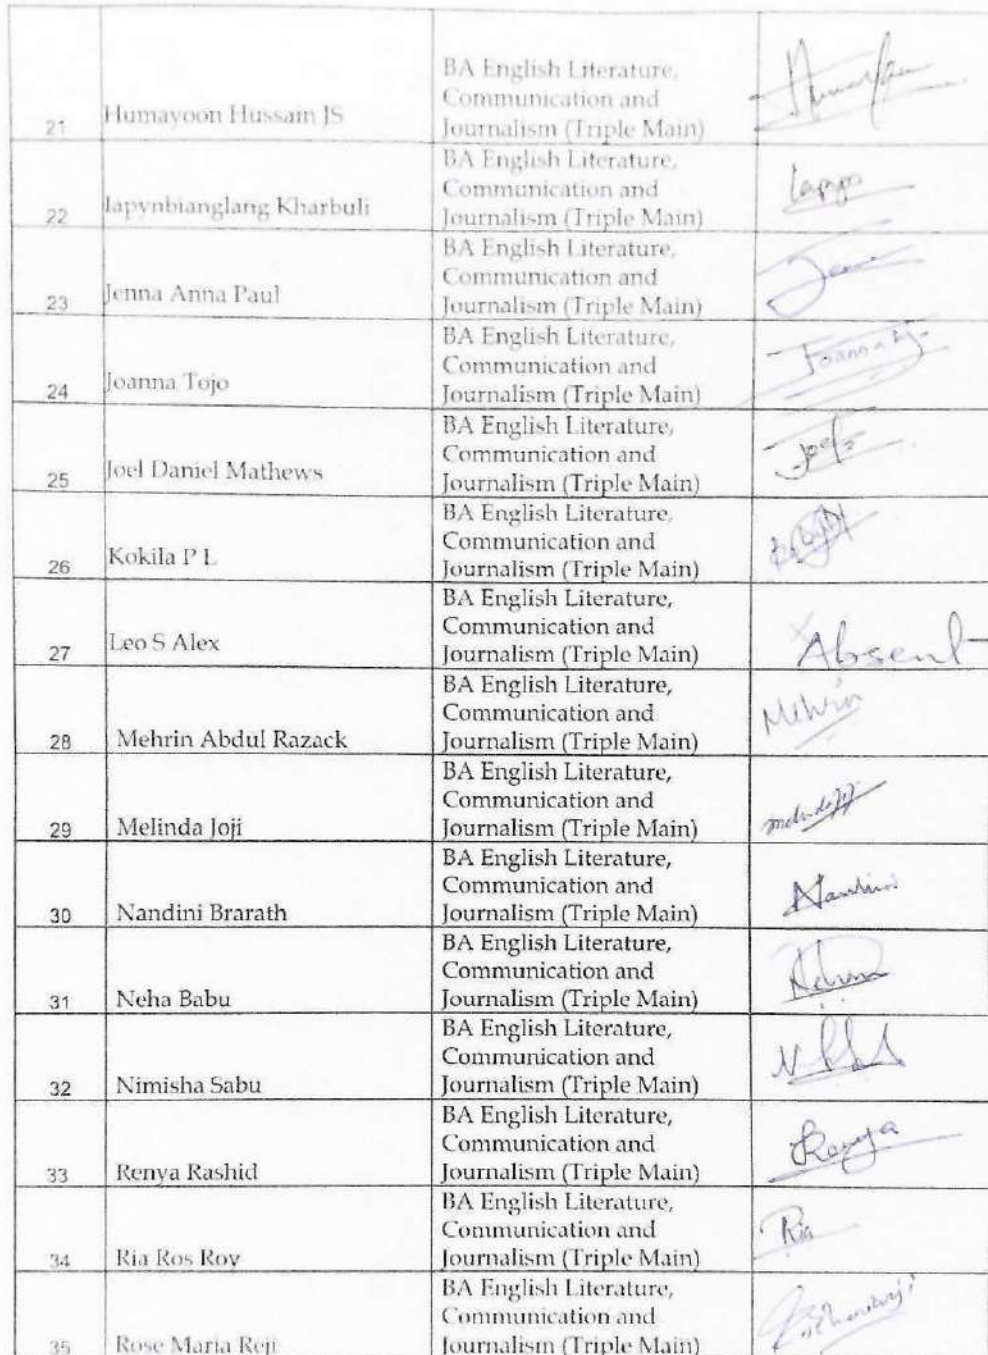 21 Humayoon Hussain JS
BA English Literature,
Communication and
Journalism (Triple Main)
22 Iapynbianglang Kharbuli
BA English Literature,
Communication and
Journalism (Triple Main)
Iapyn
23 Jenna Anna Paul
BA English Literature,
Communication and
Journalism (Triple Main)
24 Joanna Tojo
BA English Literature,
Communication and
Journalism (Triple Main)
25 Joel Daniel Mathews
BA English Literature,
Communication and
Journalism (Triple Main)
26 Kokila P L
BA English Literature,
Communication and
Journalism (Triple Main)
27 Leo S Alex
BA English Literature,
Communication and
Journalism (Triple Main)
Absent
28 Mehrin Abdul Razack
BA English Literature,
Communication and
Journalism (Triple Main)
Mehrin
29 Melinda Joji
BA English Literature,
Communication and
Journalism (Triple Main)
30 Nandini Brarath
BA English Literature,
Communication and
Journalism (Triple Main)
Nandini
31 Neha Babu
BA English Literature,
Communication and
Journalism (Triple Main)
32 Nimisha Sabu
BA English Literature,
Communication and
Journalism (Triple Main)
33 Renya Rashid
BA English Literature,
Communication and
Journalism (Triple Main)
Renya
34 Ria Ros Roy
BA English Literature,
Communication and
Journalism (Triple Main)
Ria
35 Rose Maria Reji
BA English Literature,
Communication and
Journalism (Triple Main)